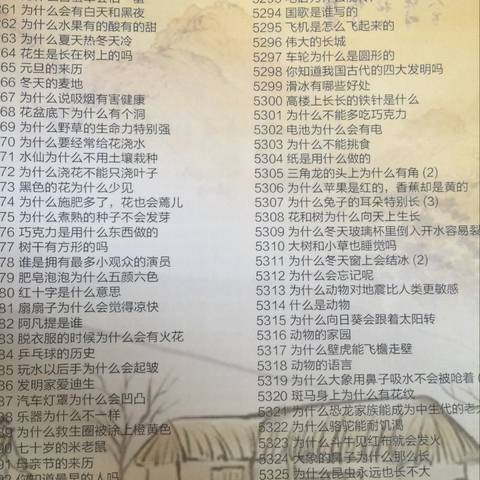 261 为什么会有白天和黑夜
62 为什么水果有的酸有的甜
63 为什么夏天热冬天冷
64 花生是长在树上的吗
65 元旦的来历
66 冬天的麦地
67 为什么说吸烟有害健康
68 花盆底下为什么有个洞
69 为什么野草的生命力特别强
70 为什么要经常给花浇水
71 水仙为什么不用土壤栽种
72 为什么浇花不能只浇叶子
73 黑色的花为什么少见
74 为什么施肥多了，花也会蔫儿
75 为什么煮熟的种子不会发芽
76 巧克力是用什么东西做的
77 树干有方形的吗
78 谁是拥有最多小观众的演员
79 肥皂泡泡为什么五颜六色
80 红十字是什么意思
81 扇扇子为什么会觉得凉快
82 阿凡提是谁
83 脱衣服的时候为什么会有火花
84 乒乓球的历史
85 玩水以后手为什么会起皱
86 发明家爱迪生
87 汽车灯罩为什么会凹凸
88 乐器为什么不一样
89 为什么救生圈被涂上橙黄色
90 七十岁的米老鼠
91 母亲节的来历
92 你知道最早的人吗
5294 国歌是谁写的
5295 飞机是怎么飞起来的
5296 伟大的长城
5297 车轮为什么是圆形的
5298 你知道我国古代的四大发明吗
5299 滑冰有哪些好处
5300 高楼上长长的铁针是什么
5301 为什么不能多吃巧克力
5302 电池为什么会有电
5303 为什么不能挑食
5304 纸是用什么做的
5305 三角龙的头上为什么有角 (2)
5306 为什么苹果是红的，香蕉却是黄的
5307 为什么兔子的耳朵特别长 (3)
5308 花和树为什么向天上生长
5309 为什么冬天玻璃杯里倒入开水容易裂
5310 大树和小草也睡觉吗
5311 为什么冬天窗上会结冰 (2)
5312 为什么会忘记呢
5313 为什么动物对地震比人类更敏感
5314 什么是动物
5315 为什么向日葵会跟着太阳转
5316 动物的家园
5317 为什么壁虎能飞檐走壁
5318 动物的语言
5319 为什么大象用鼻子吸水不会被呛着
5320 斑马身上为什么有花纹
5321 为什么恐龙家族能成为中生代的老大
5322 为什么骆驼能耐饥渴
5323 为什么斗牛见红布就会发火
5324 大象的鼻子为什么那么长
5325 为什么昆虫永远也长不大